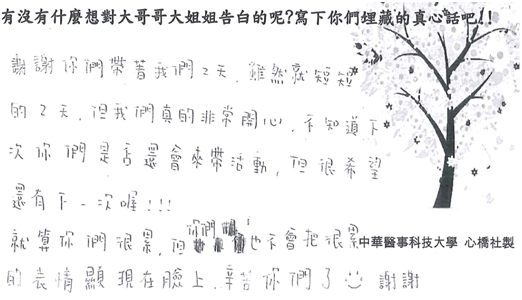 有沒有什麼想對大哥哥大姐姐告白的呢?寫下你們埋藏的真心話吧!!
謝謝你們帶著我們2天,雖然就短短
的2天,但我們真的非常開心,不知道下
次你們是否還會來帶活動,但很希望
還有下一次喔!!!
就算你們很累,但你們也不會把很累
中華醫事科技大學 心橋社製
的表情顯現在臉上,辛苦你們了 謝謝